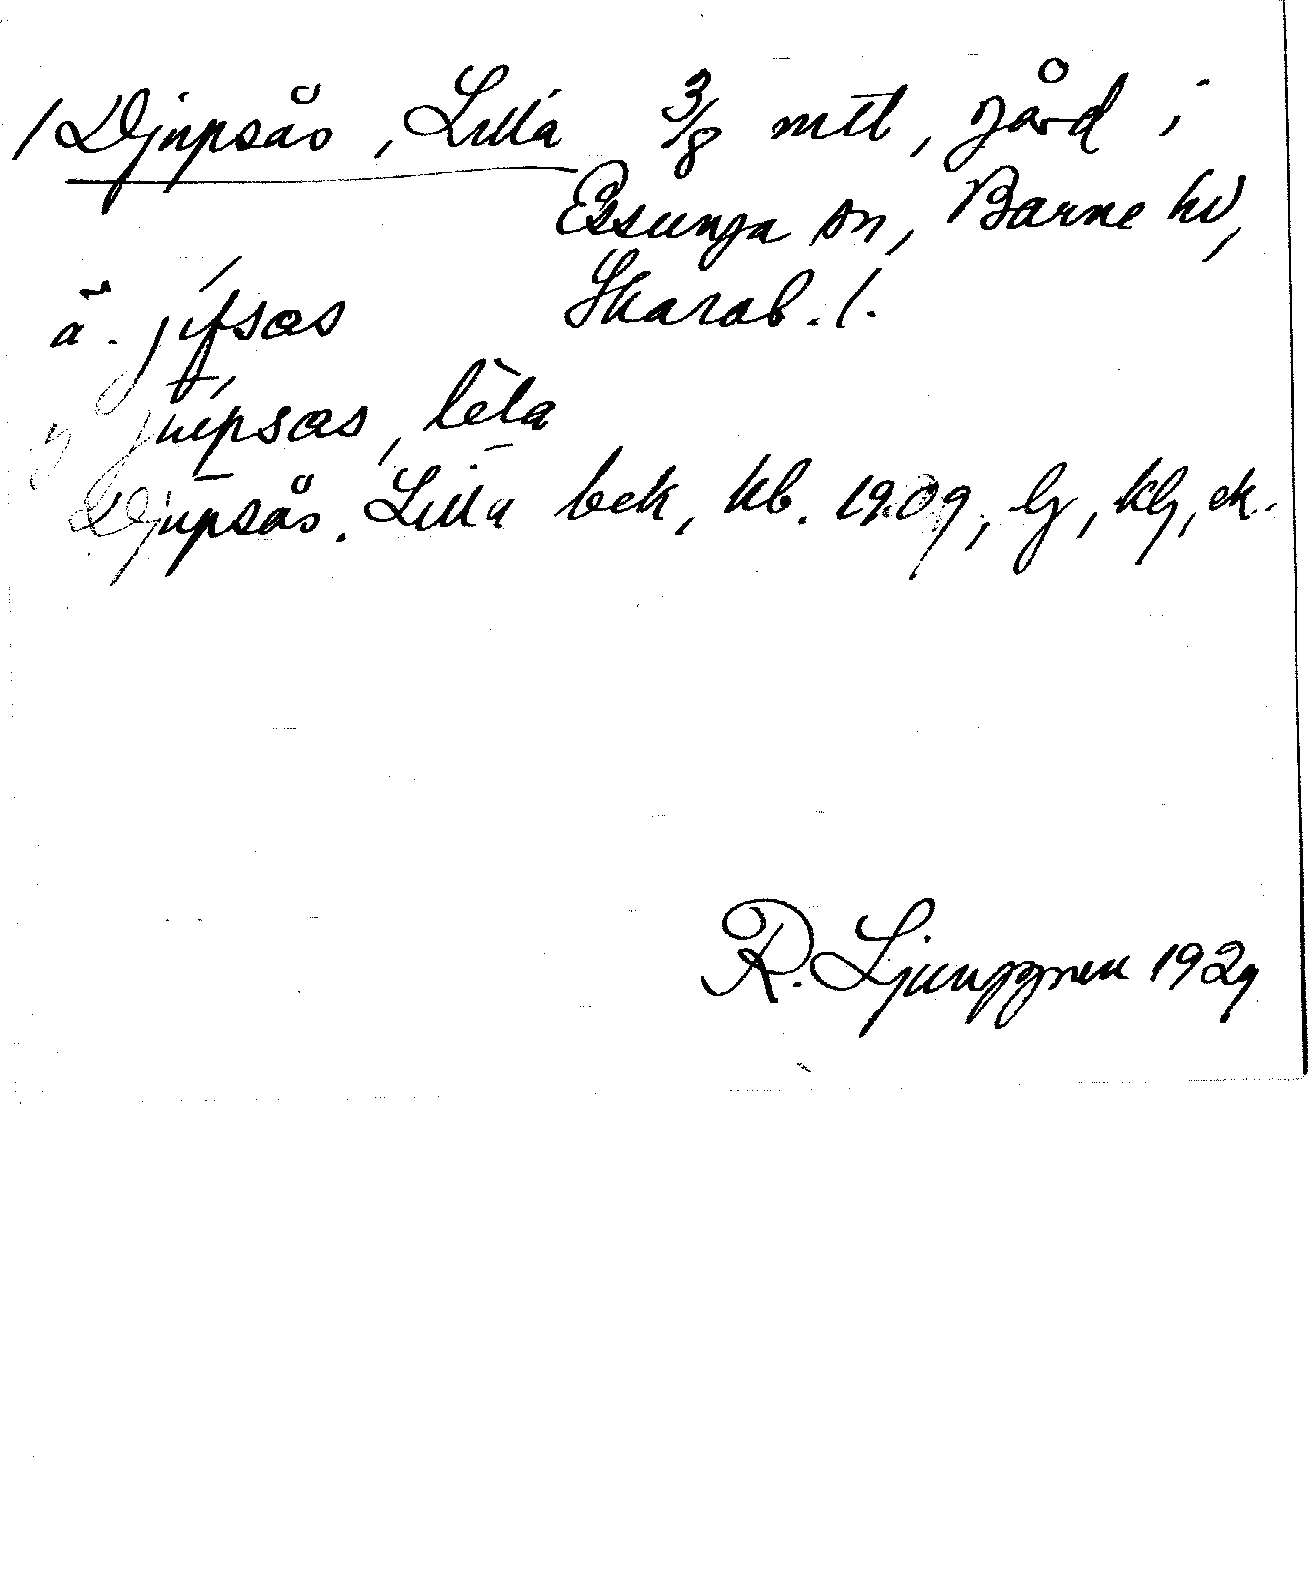 / Djupsås, Lilla 3/8 mtl, gård i
Essunga sn, Barne hd,
Skarab. l.
ä. jifsas
y jupsas, lela
Djupsås. Lilla bek, kb. 1909, lj, klg, ek.
R. Ljunggren 1929